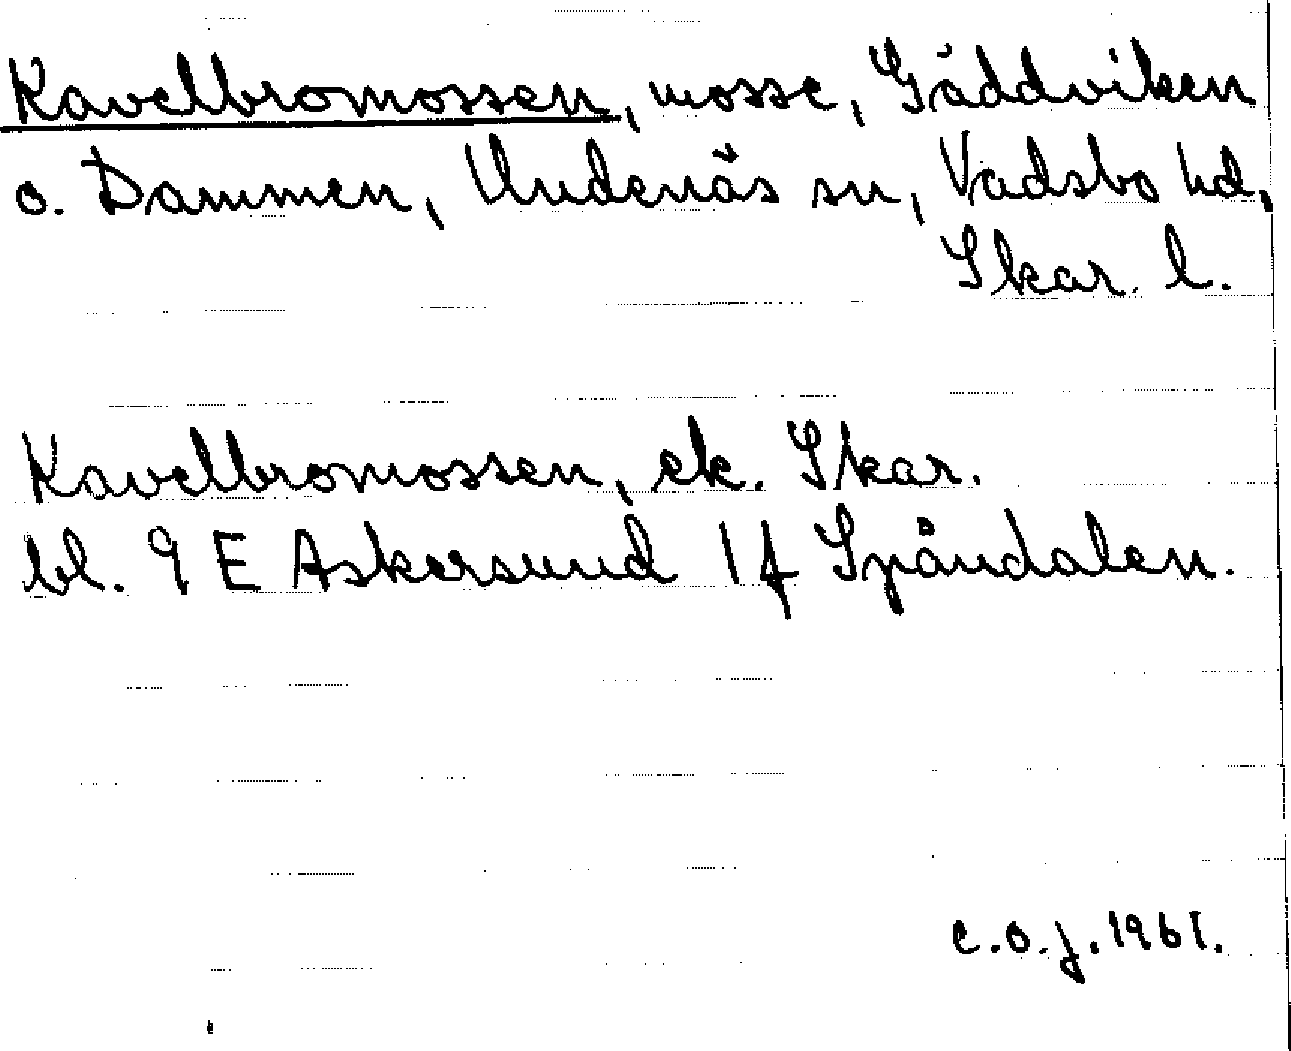 Kavelbromossen, mosse, Gäddviken
o. Dammen, Undenäs sn, Vadsbo hd,
Skar. l.
Kavelbromossen, ek. Skar.
bl. 9 E Askersund 1f Spåndalen.
c.o.j. 1961.